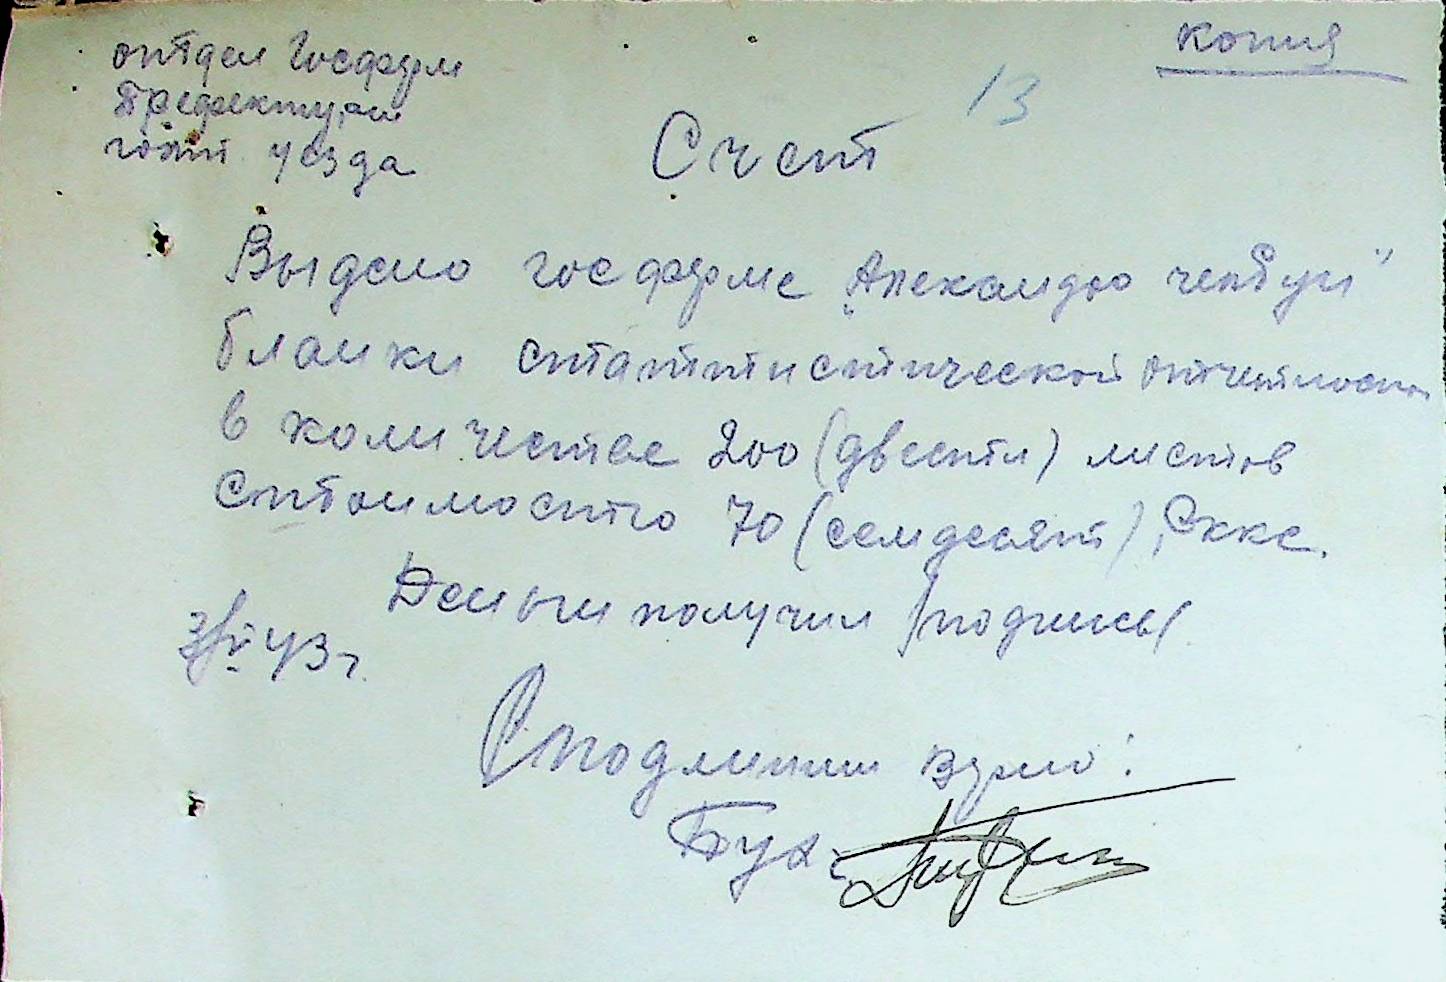 Копия
отдел Госферм
Префектуры
гол. уезда
13
Счет
Выдано госферме „Александро челбун"
бланки статтистической отчетности
в количестве 200 (двести) листов
Стоимостю 70 (семдесят) Рккс.
Деньги получил /подпись/
3/IV 43 г.
С подлинним верно:
Бух.